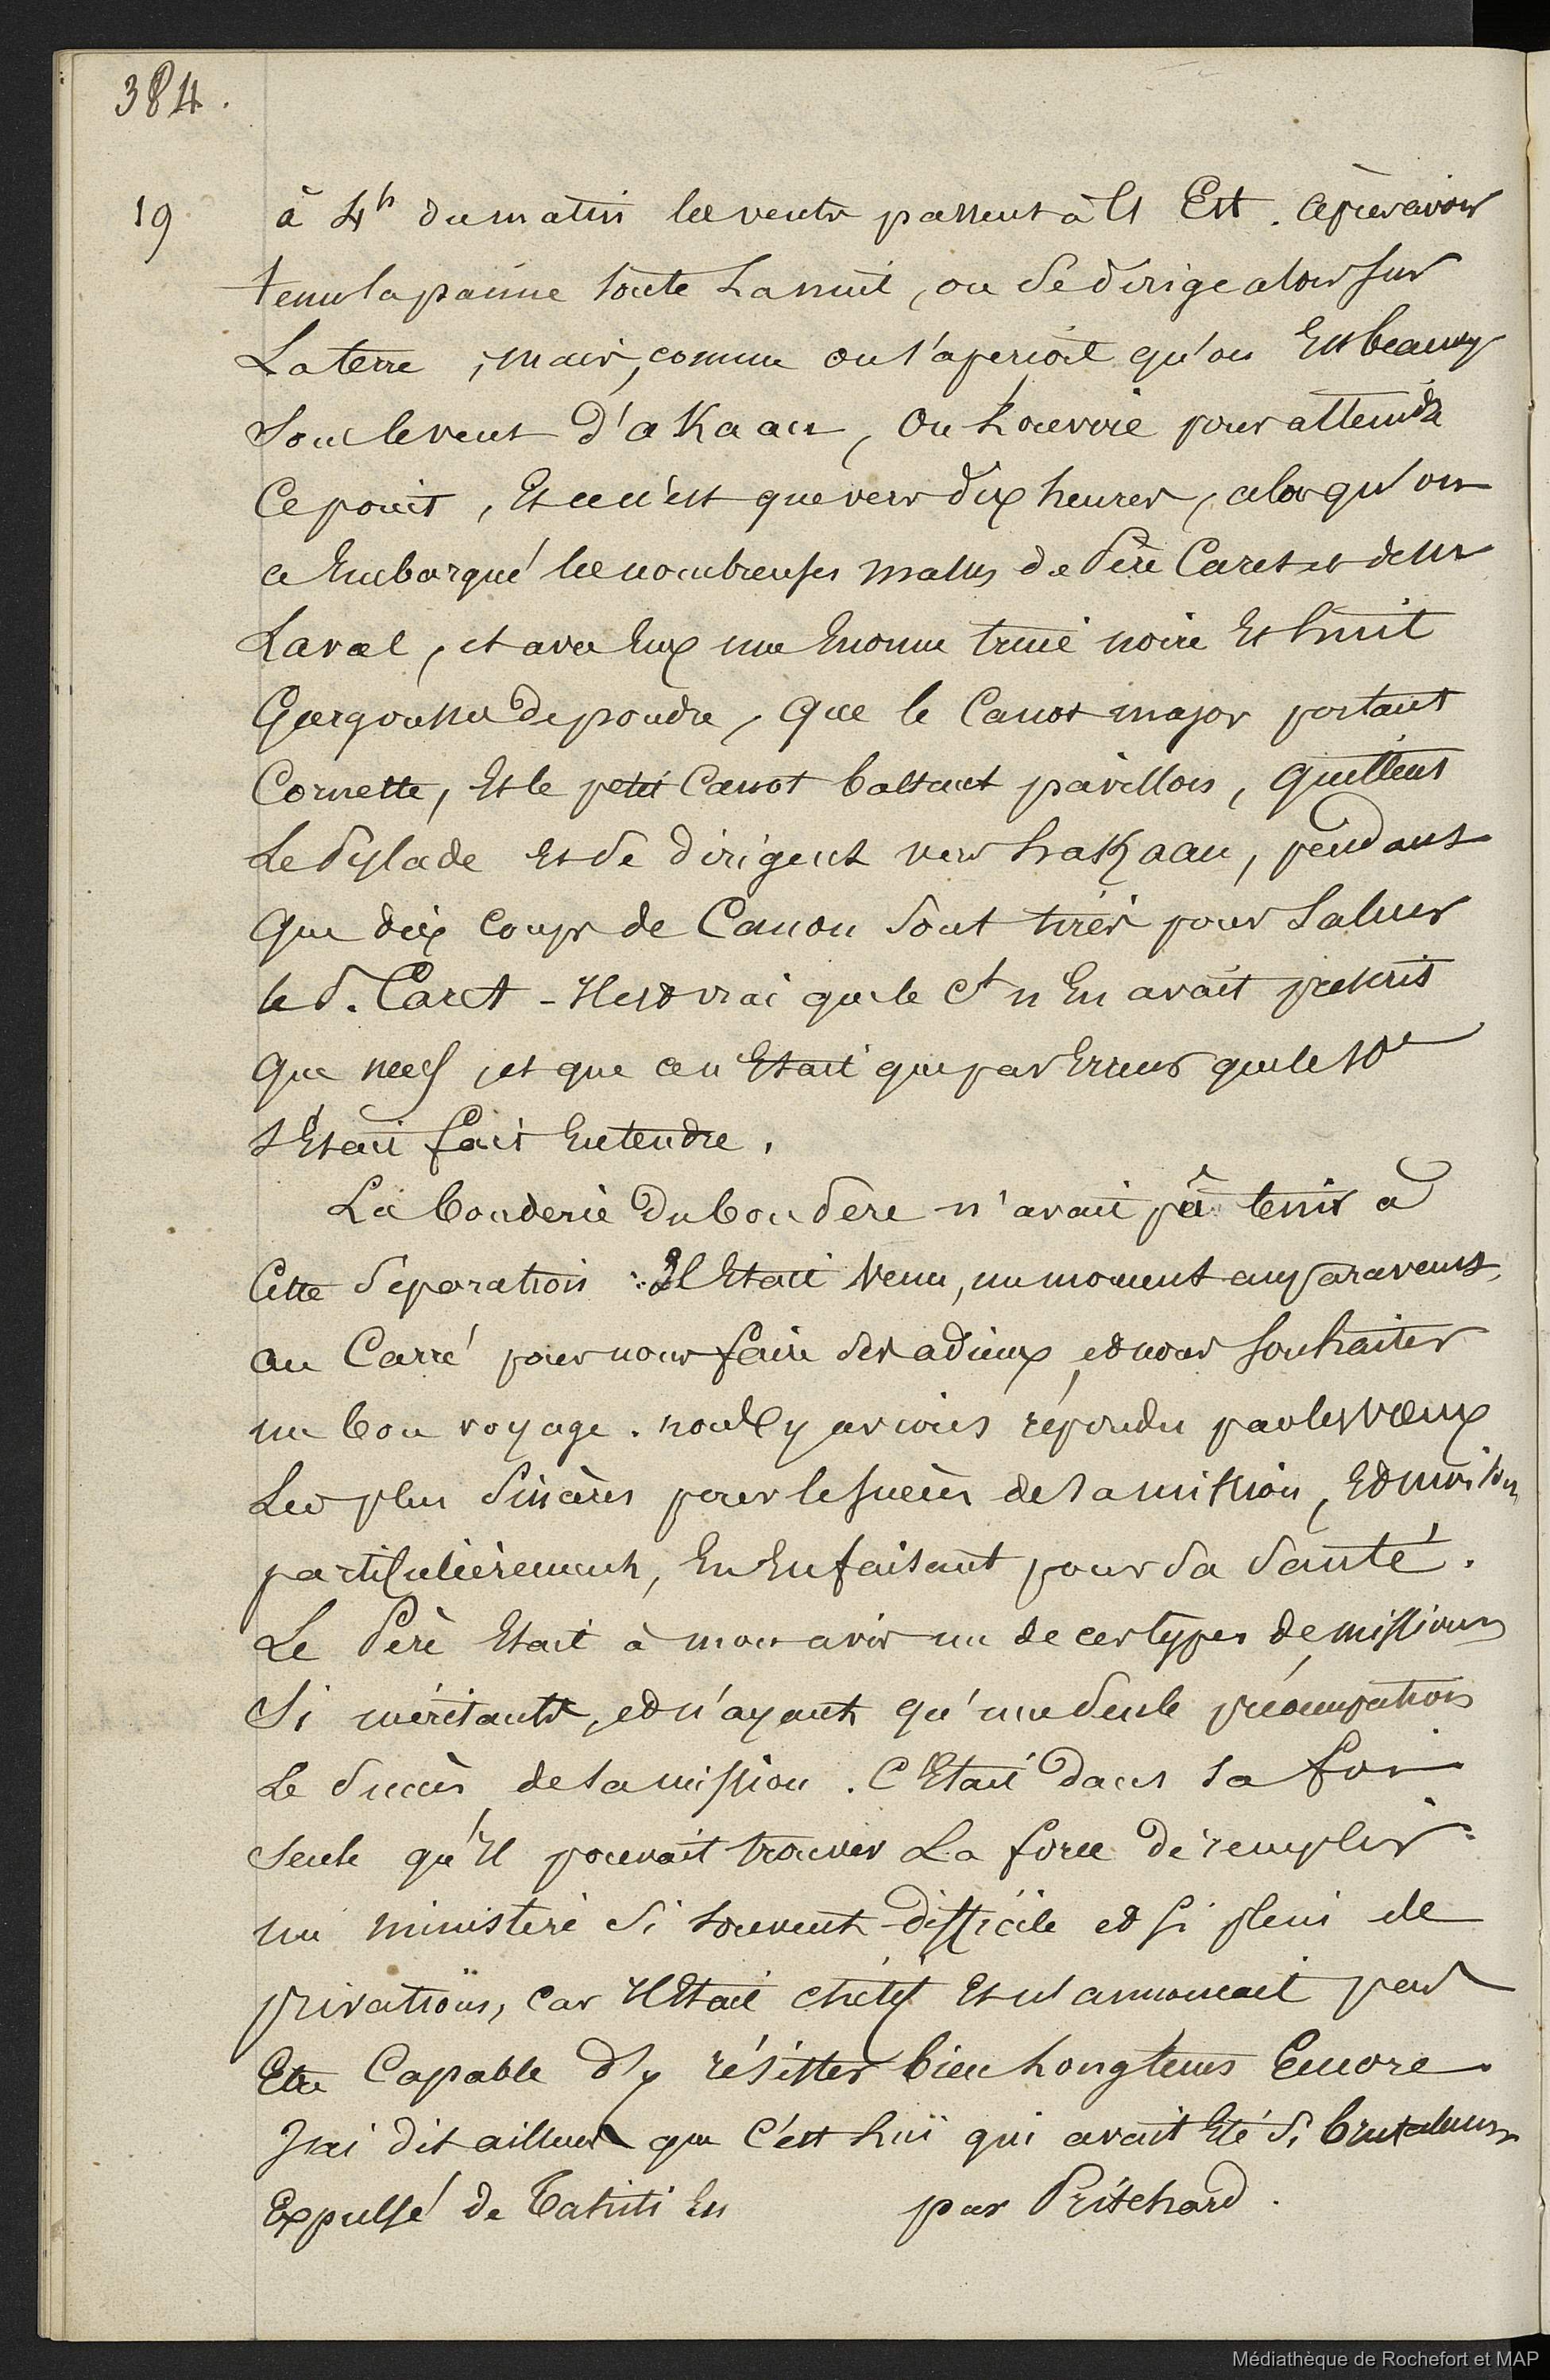 384.
19 à 4h du matin les vents passent à l'Est. après avoir
tenu la panne toute la nuit, on se dirige alors sur
La terre ; mais, comme on s'aperçoit qu'on Est beaucoup
sous le vent d'aKaau, On Louvoie pour atteindre
Ce point, Et ce n'est que vers dix heures, alors qu'on
a Embarqué les nombreuses malles de Père Caret et de Mr
Laval, et avec Eux une Enorme truie noire Et huit
Gargousses de poudre, que le Canot major portant
Cornette, Et le petit Canot battant pavillon, quittent
Le Pylade Et se dirigent vers haKaau, pendant
que dix coups de Canon sont tirés pour saluer
le P. Caret - Il est vrai que le Ct n'En avait prescrit
que neuf, et que ce n'Etait que par Erreur que le 10e
s'Etait fait Entendre.
La bonderie du bon père n'avait pû tenir à
Cette séparation : Il Etait venu, un moment auparavant,
au Carré pour nous faire ses adieux et nous souhaiter
un bon voyage. nous y avions répondu par les vœux
Les plus sincères pour le succès de sa mission, Et moi
particulièrement, En En faisant pour sa santé.
Le Père Etait à mon avis un de ces types de missionn
si méritants, et n'ayant qu'une seule préoccupation
Le succès de sa mission. C'Etait dans sa foi
seule qu'Il pouvait trouver La force de remplir
un ministère si souvent difficile et si plein de
privations, car Il Etait chétif Et n'annonçait pas
Etre Capable d'y résister bien Longtems Encore.
J'ai dit ailleurs que c'est Lui qui avait Eté si brutalemen
Expulsé de Tahiti En par Pritchard.
Médiathèque de Rochefort et MAP